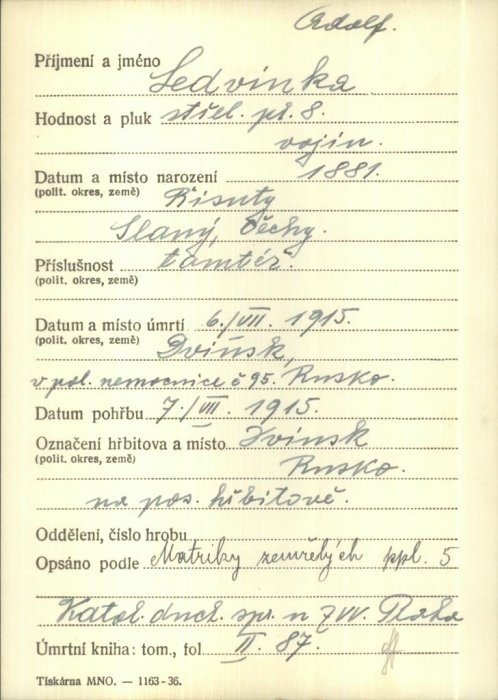 Adolf.
Příjmení a jméno Ledvinka
Hodnost a pluk střel. pl. 8.
vojín.
Datum a místo narození 1881.
(polit. okres, země) Řisuty
Slaný, Čechy.
Příslušnost tamtéž.
(polit. okres, země)
Datum a místo úmrtí 6./VII. 1915.
(polit. okres, země) Dvinsk,
v pol. nemocnice č 95. Rusko.
Datum pohřbu 7./VII. 1915.
Označení hřbitova a místo Dvinsk
(polit. okres, země) Rusko.
na pos. hřbitově.
Oddělení, číslo hrobu
Opsáno podle Matriky zemřelých ppl. 5
Katol. duch. spr. u ZVV. Praha
Úmrtní kniha: tom., fol II. 87.
Tiskárna MNO. — 1163-36.